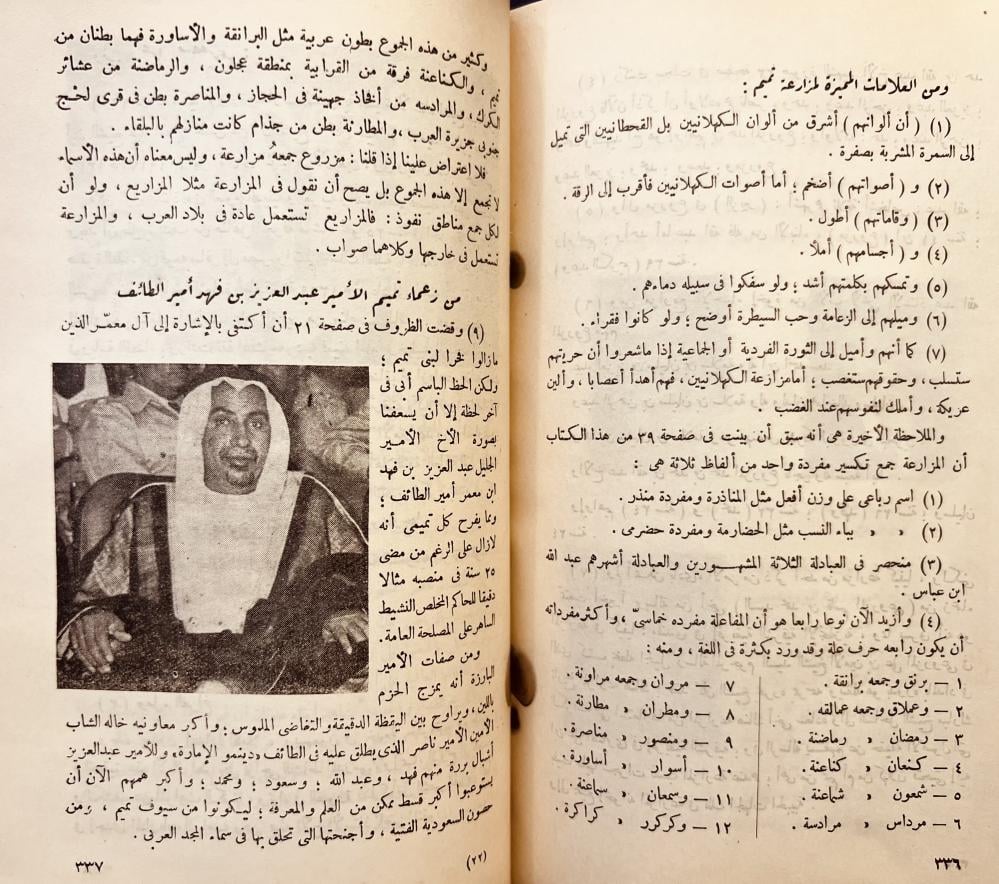 ومن العلامات المميزة لمزارعة تميم :
(١) ( أن ألوانهم ) أشرق من ألوان الكهلانيين بل القحطانيين التى تميل
إلى السمرة المشربة بصفرة .
(٢) و ( أصواتهم ) أضخم ؛ أما أصوات الكهلانيين فأقرب إلى الرقة .
(٣) ( وقاماتهم ) أطول .
(٤) و ( أجسامهم ) أملأ .
(٥) وتمسكهم بكلمتهم أشد ؛ ولو سفكوا فى سبيله دماءهم .
(٦) وميلهم إلى الزعامة وحب السيطرة أوضح ؛ ولو كانوا فقراء .
(٧) كما أنهم وأميل إلى الثورة الفردية أو الجماعية إذا ماشعروا أن حريتهم
ستسلب ، وحقوقهم ستغصب ؛ أمامزارعة الكهلانيين ، فهم أهدأ أعصابا ، وألين
عريكة ، وأملك لنفوسهم عند الغضب .
والملاحظة الأخيرة هى أنه سبق أن بينت فى صفحة ٣٩ من هذا الكتاب
أن المزارعة جمع تكسير مفردة واحد من ألفاظ ثلاثة هى :
(١) اسم رباعى على وزن أفعل مثل المناذرة ومفردة منذر .
(٢) » » بياء النسب مثل الحضارمة ومفردة حضرمى .
(٣) منحصر فى العبادلة الثلاثة المشهورين والعبادلة أشهرهم عبد الله
ابن عباس .
(٤) وأزيد الآن نوعا رابعا هو أن المفاعلة مفرده خماسىّ ، وأكثر مفرداته
أن يكون رابعه حرف علة وقد ورد بكثرة فى اللغة ، ومنه :
١ — برنق وجمعه برانقة .
٢ — وعملاق وجمعه عمالقه .
٣ — رمضان » رماضنة .
٤ — كنعان » كناعنة .
٥ — شمعون » شماعنة .
٦ — مرداس » مرادسة .
٧ — مروان وجمعه مراونة .
٨ — ومطران » مطارنة .
٩ — ومنصور » مناصرة .
١٠ — أسوار » أساورة .
١١ — وسمعان » سماعنة .
١٢ — وكركرر » كراكرة .
٣٣٦
وكثير من هذه الجموع بطون عربية مثل البرانقة والأساورة فهما بطنان من
تميم ، والكناعنة فرقة من القرابية بمنطقة عجلون ، والرماضنة من عشائر
الكرك ، والمرادسه من أفخاذ جهينة فى الحجاز ، والمناصرة بطن فى قرى لحج
جنوبى جزيرة العرب ، والمطارنة بطن من جذام كانت منازلهم بالبلقاء .
فلا اعتراض علينا إذا قلنا : مزروع جمعهُ مزارعة ، وليس معناه أن هذه الأسماء
لاتجمع إلا هذه الجموع بل يصح أن نقول فى المزارعة مثلا المزاريع ، ولو أن
لكل جمع مناطق نفوذ : فالمزاريع تستعمل عادة فى بلاد العرب ، والمزارعة
تستعمل فى خارجها وكلاهما صواب .
من زعماء تميم الأمير عبد العزيز بن فهد أمير الطائف
(٩) وقضت الظروف فى صفحة ٢١ أن أكتفى بالإشارة إلى آل معمّر الذين
مازالوا فخرا لبنى تميم ؛
ولكن الحظ الباسم أبى فى
آخر لحظة إلا أن يسعفنا
بصورة الأخ الأمير
الجليل عبد العزيز بن فهد
ابن معمر أمير الطائف ؛
ومما يفرح كل تميمى أنه
لازال على الرغم من مضى
٢٥ سنة فى منصبه مثالا
دقيقا للحاكم المخلص النشيط
الساهر على المصلحة العامة .
ومن صفات الأمير
البارزة أنه يمزج الحزم
باللين ، ويراوح بين اليقظة الدقيقة والتغاضى المدوس ؛ وأكبر معاونيه خاله الشاب
الأمين الأمير ناصر الذى يطلق عليه فى الطائف «دينمو الإمارة» وللأمير عبدالعزيز
أشبال بررة منهم فهد ، وعبد الله ؛ وسعود ؛ ومحمد ؛ وأكبر همهم الآن أن
يستوعبوا أكبر قسط ممكن من العلم والمعرفة ؛ ليكونوا من سيوف تميم ، ومن
حصون السعودية الفتية ، وأجنحتها التى تحلق بها فى سماء المجد العربى .
(٢٢)
٣٣٧